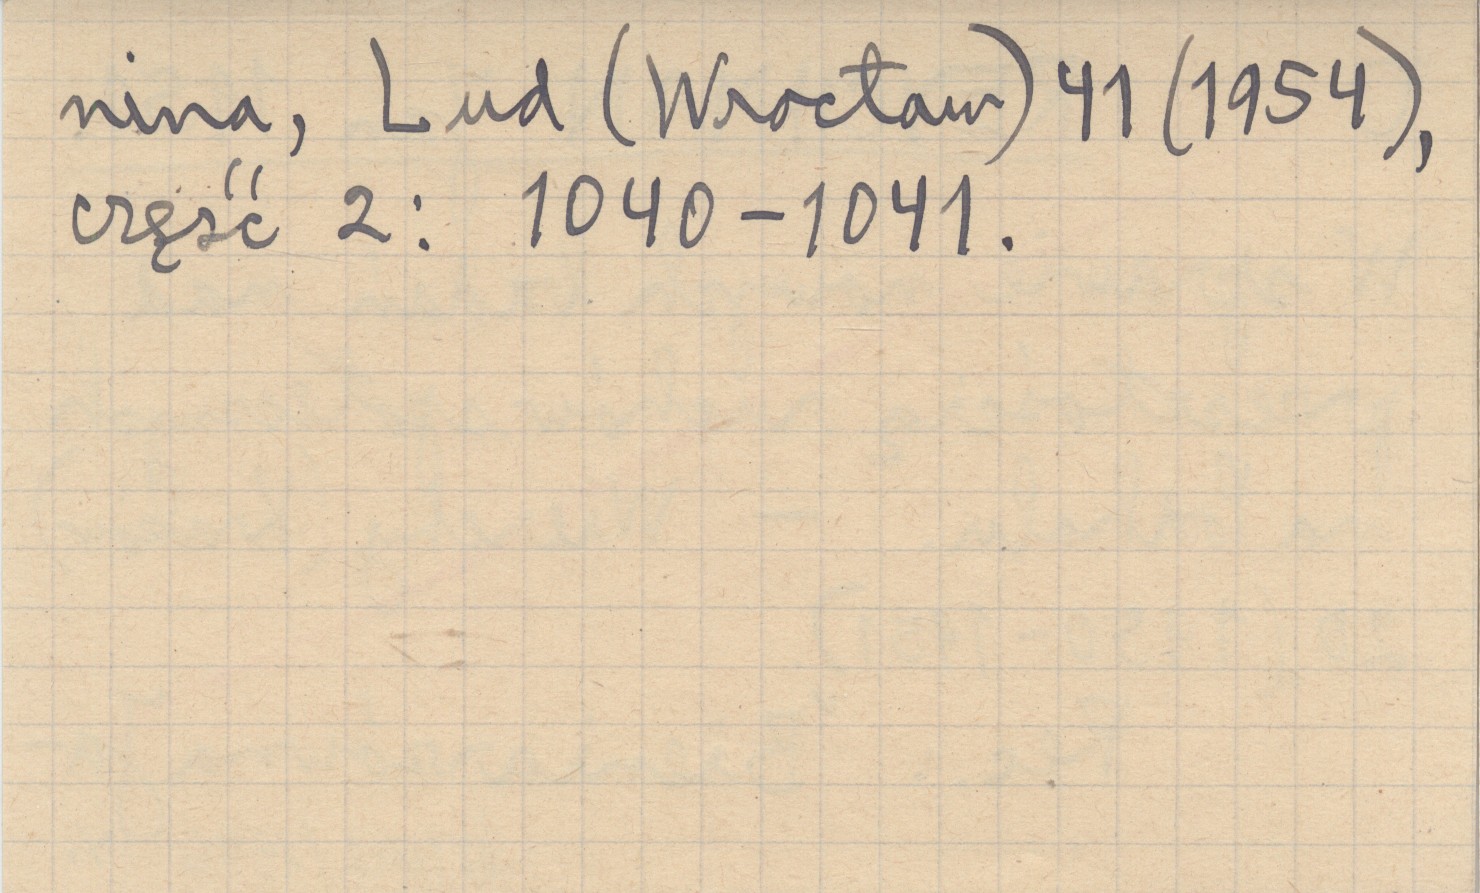 nina, Lud (Wrocław) 41 (1954),
część 2: 1040-1041.